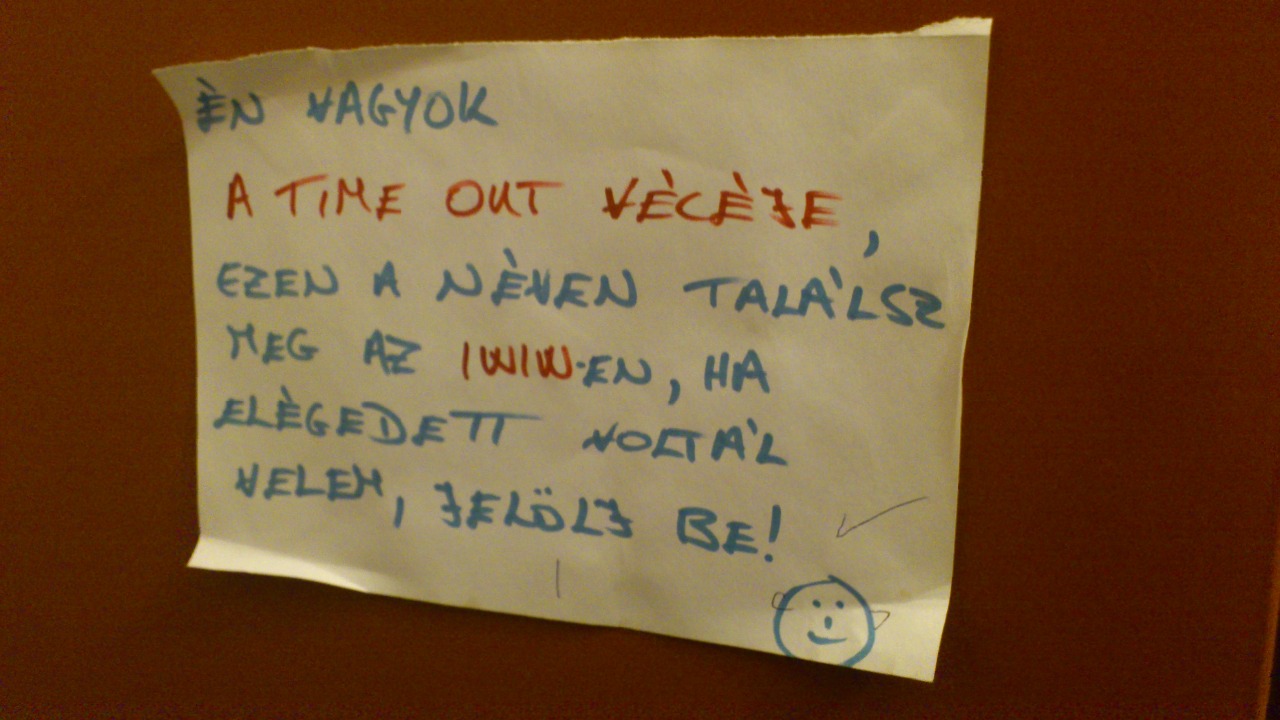 ÈN VAGYOK
A TIME OUT VÈCÈJE,
EZEN A NÈVEN TALÀLSZ
MEG AZ IWIW-EN, HA
ELÈGEDETT VOLTÀL
VELEM, JELÖLJ BE!